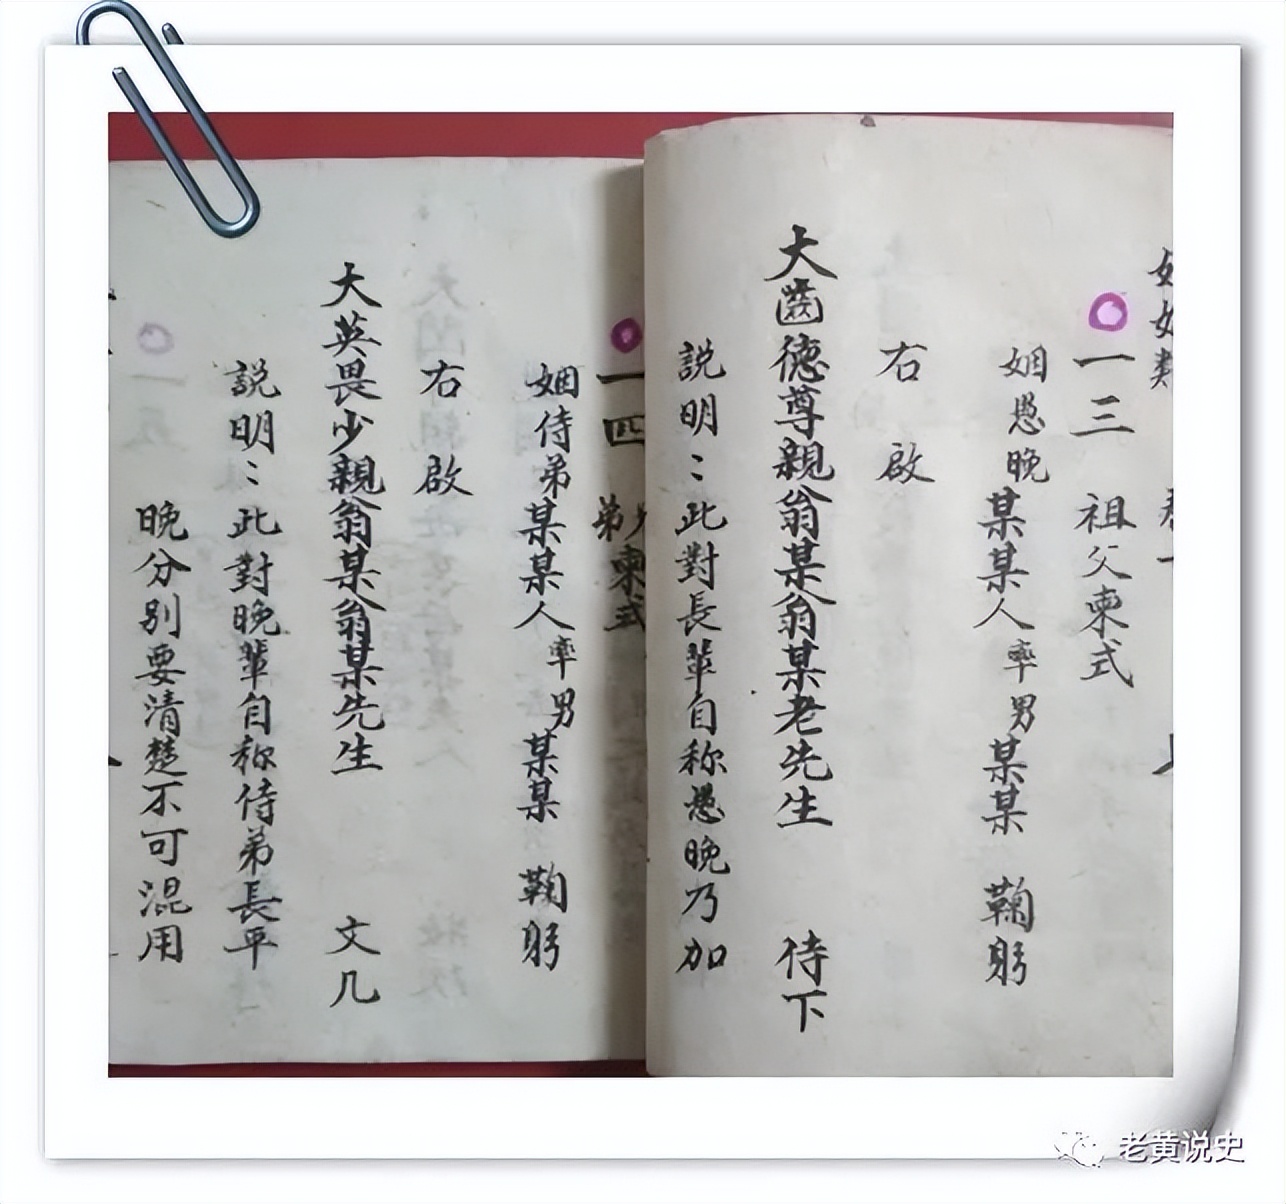 一三 祖父柬式
姻愚晚某某人率男某某 鞠躬
右 啟
大齒德尊親翁某翁某老先生 侍下
説明：此對長輩自称愚晚乃加
一四 弟柬式
姻侍弟某某人率男某某 鞠躬
右 啟
大英畏少親翁某翁某先生 文几
説明：此對晚輩自称侍弟長平
晚分别要清楚不可混用
老黄说史